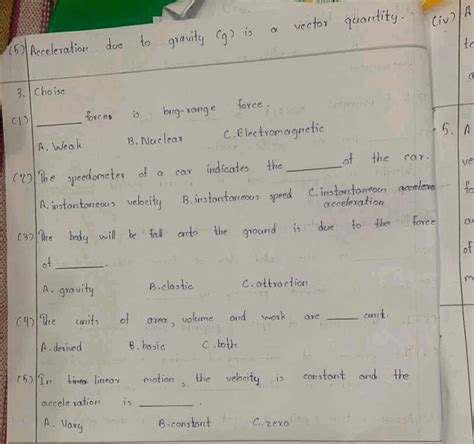 (5) Acceleration due to gravity (g) is a vector quantity.
3. Choise
(1) ______ forces is long-range force.
A. Weak B. Nuclear C. Electromagnetic
(2) The speedometer of a car indicates the ______ of the car.
A. instantaneous velocity B. instantaneous speed C. instantaneous acceleration
(3) The body will be fall onto the ground is due to the force
of ______.
A. gravity B. elastic C. attraction
(4) The units of area, volume and work are ____ unit.
A. derived B. basic C. both
(5) In linear motion, the velocity is constant and the
acceleration is ______.
A. Vary B. constant C. zero
(iv) A
5. A